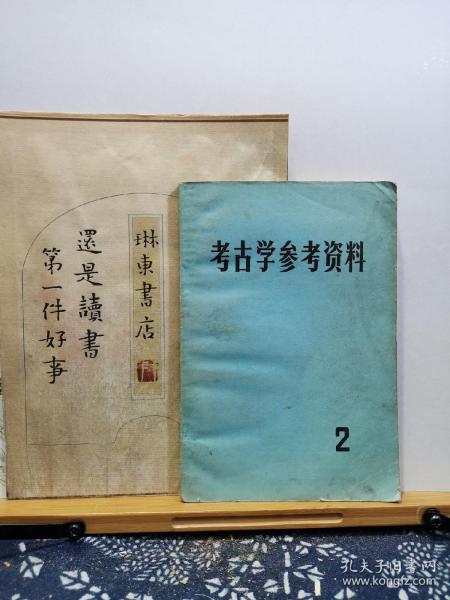 琳東書店
還是讀書
第一件好事
考古学参考资料
2
孔夫子旧书网
www.kongfz.com